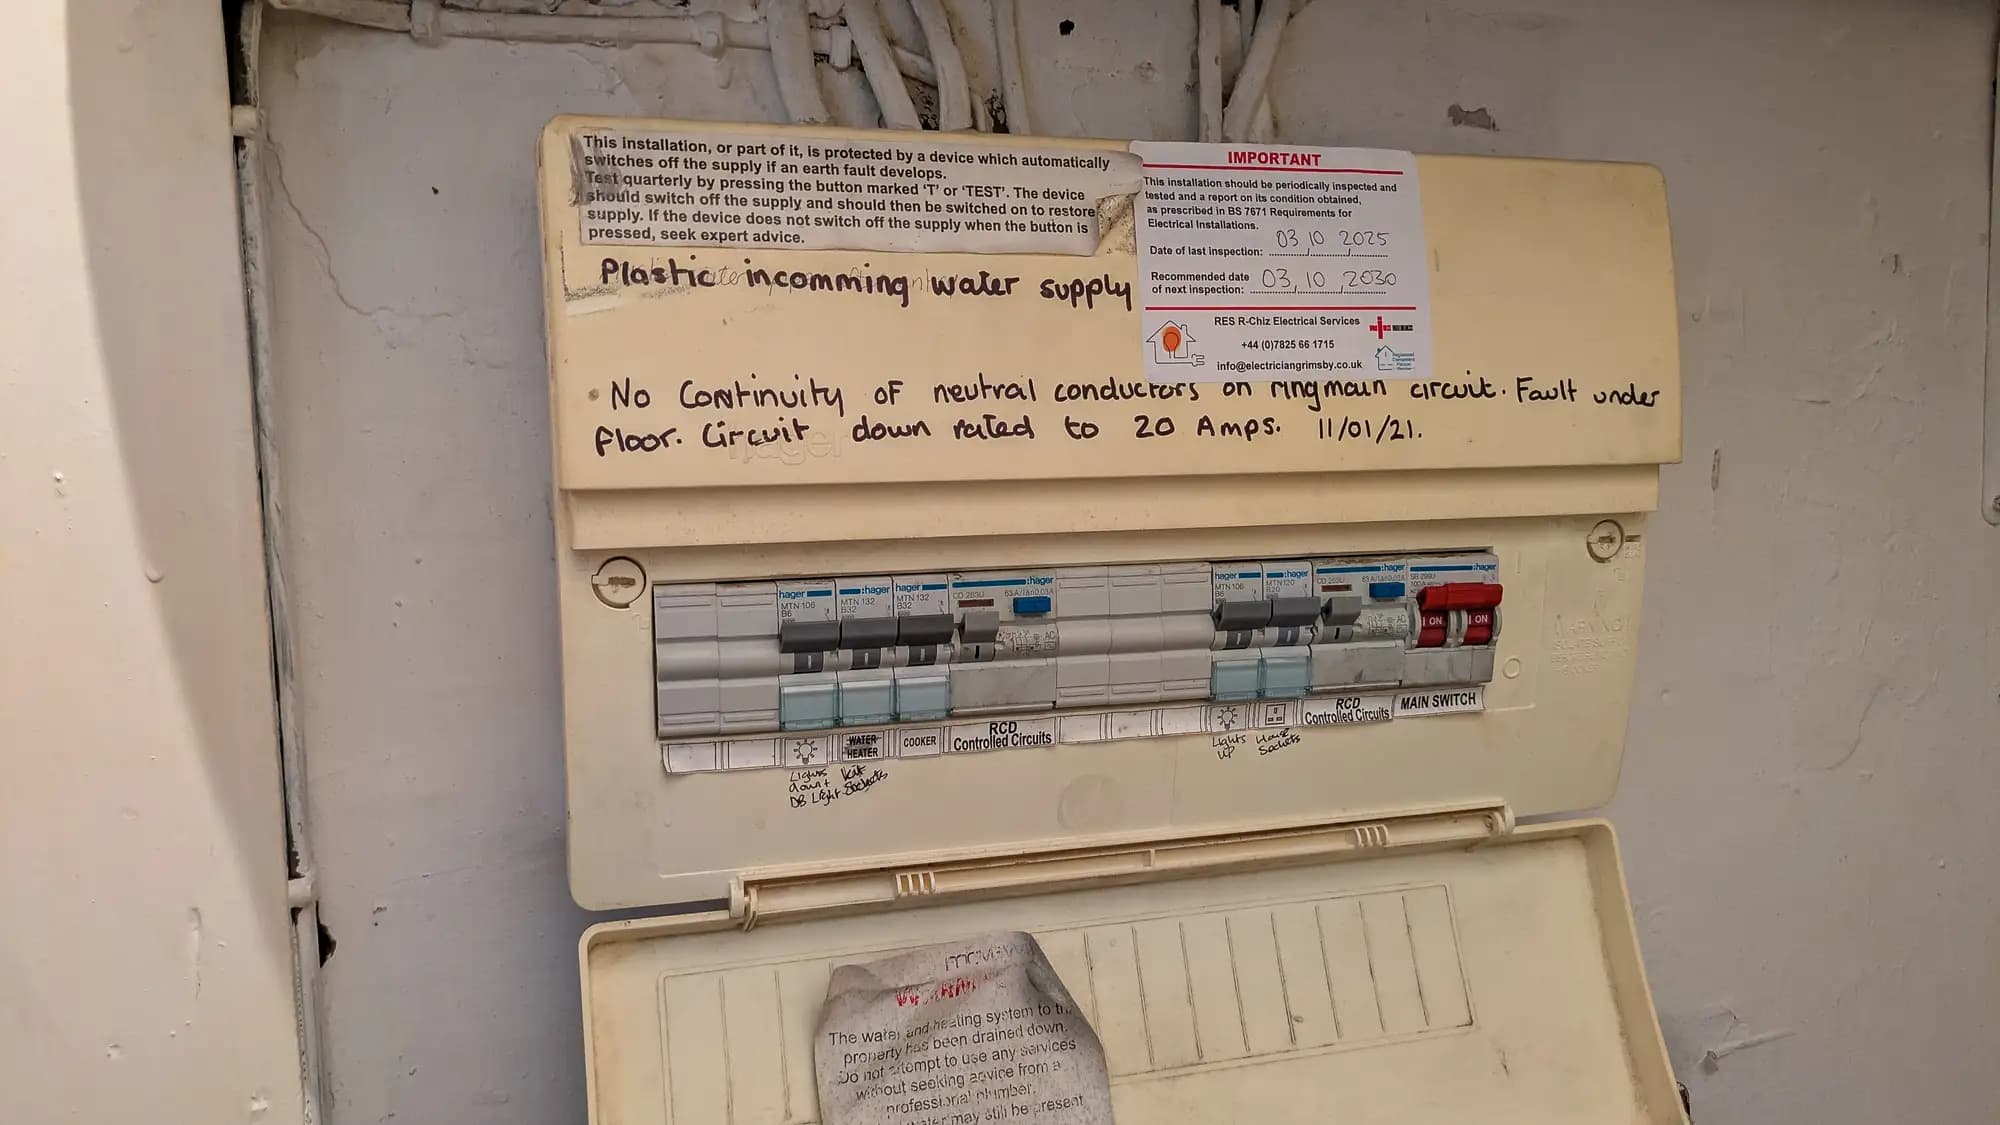 This installation, or part of it, is protected by a device which automatically
switches off the supply if an earth fault develops.
Test quarterly by pressing the button marked 'T' or 'TEST'. The device
should switch off the supply and should then be switched on to restore
supply. If the device does not switch off the supply when the button is
pressed, seek expert advice.
IMPORTANT
This installation should be periodically inspected and
tested and a report on its condition obtained,
as prescribed in BS 7671 Requirements for
Electrical Installations.
Date of last inspection: 03 10 2025
Recommended date
of next inspection: 03, 10, 2030
RES R-Chiz Electrical Services
+44 (0)7825 66 1715
info@electriciangrimsby.co.uk
Plastic incomming water supply
• No Continuity of neutral conductors on ringmain circuit. Fault under
floor. Circuit down rated to 20 Amps. 11/01/21.
hager
hager
MTN 106
B6
:hager
MTN 132
B32
hager
MTN 132
B32
:hager
CD 263U
63A/IΔn0,03A
AC
hager
MTN 106
B6
hager
MTN120
B20
:hager
CD 263U
63A/IΔn0,03A
:hager
SB 299U
100A
I ON
I ON
WARNING
WATER
HEATER
COOKER
RCD
Controlled Circuits
RCD
Controlled Circuits
MAIN SWITCH
Lights
down+
DB Light
Kit
Sockets
Lights
UP
House
Sockets
The water and heating system to
property has been drained down.
Do not attempt to use any services
without seeking advice from a
professional plumber.
may still be present